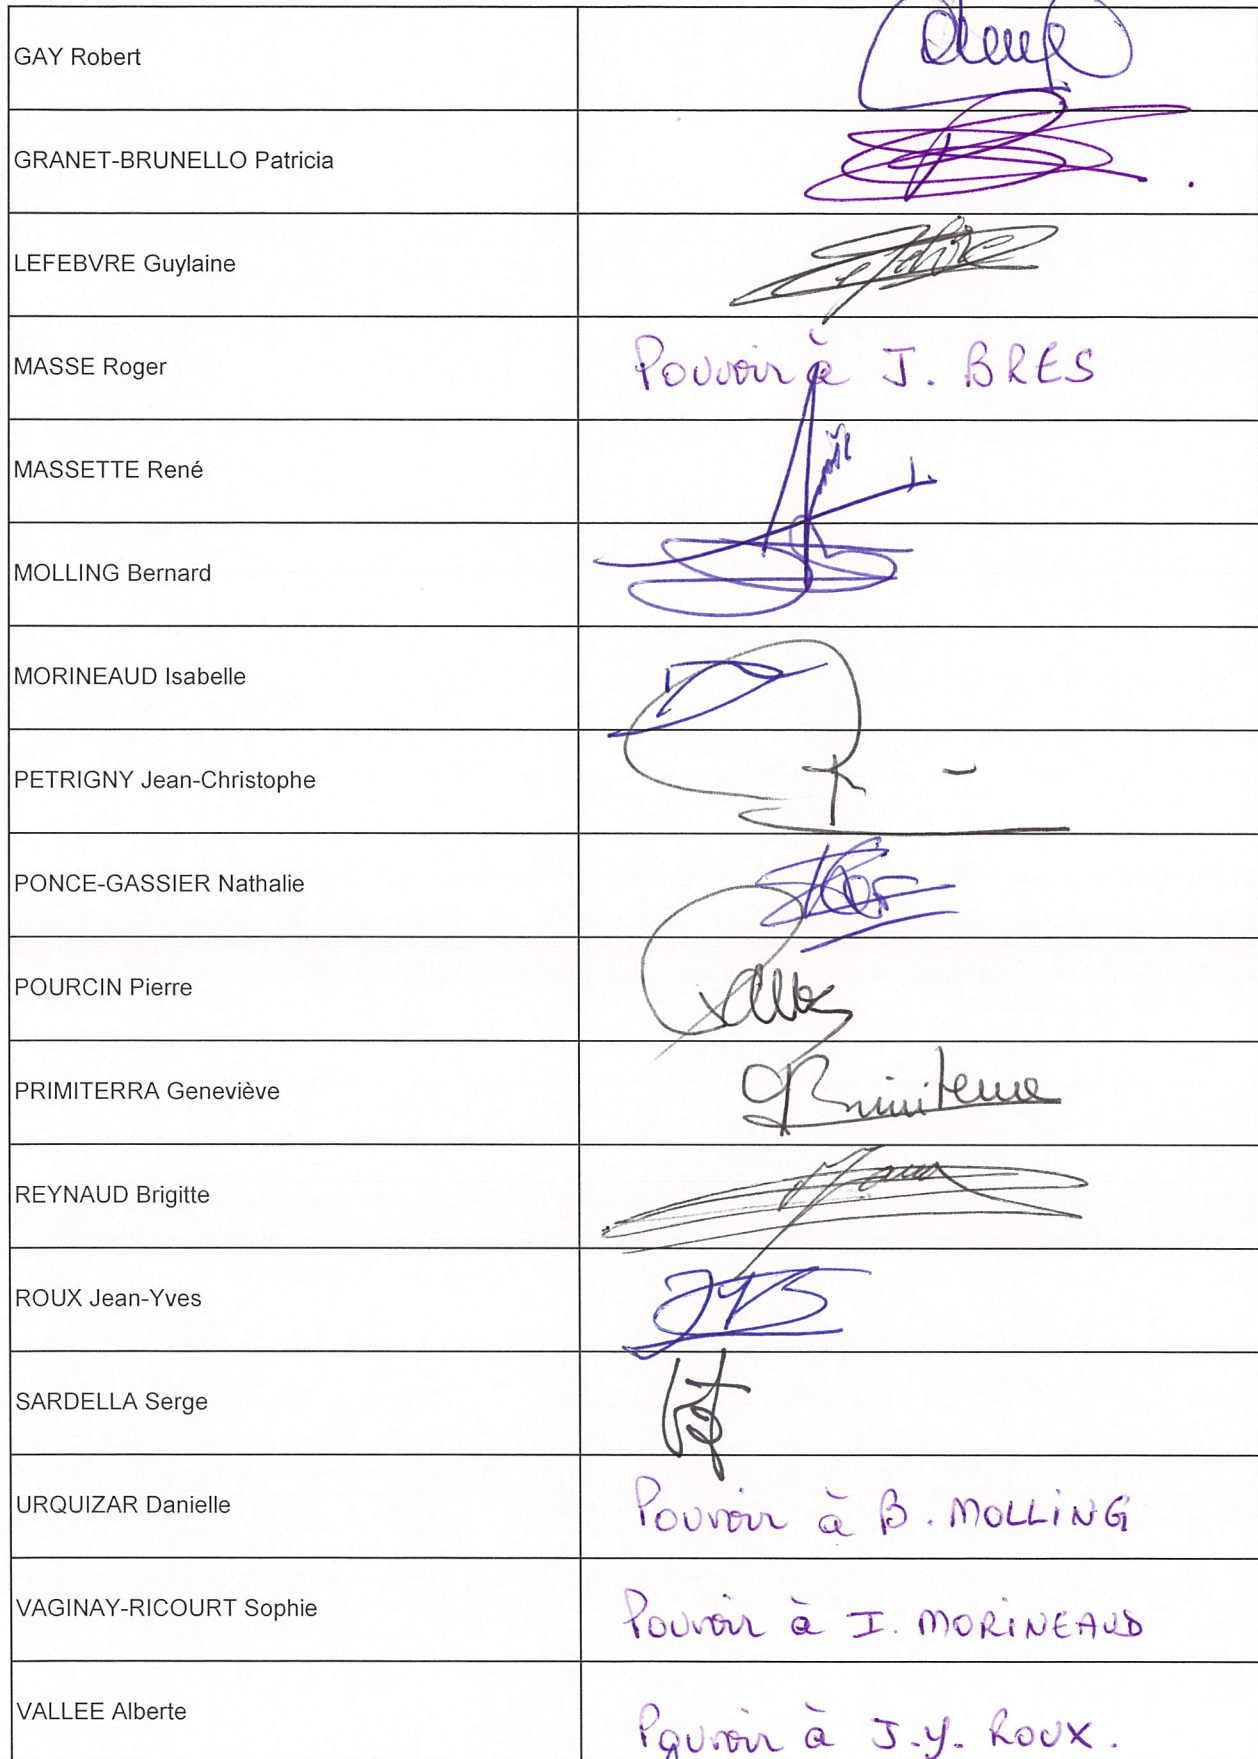 GAY Robert
GRANET-BRUNELLO Patricia
LEFEBVRE Guylaine
MASSE Roger Pouvoir à J. BRES
MASSETTE René
MOLLING Bernard
MORINEAUD Isabelle
PETRIGNY Jean-Christophe
PONCE-GASSIER Nathalie
POURCIN Pierre
PRIMITERRA Geneviève
REYNAUD Brigitte
ROUX Jean-Yves
SARDELLA Serge
URQUIZAR Danielle Pouvoir à B. MOLLING
VAGINAY-RICOURT Sophie Pouvoir à I. MORINEAUD
VALLEE Alberte Pouvoir à J.Y. ROUX.